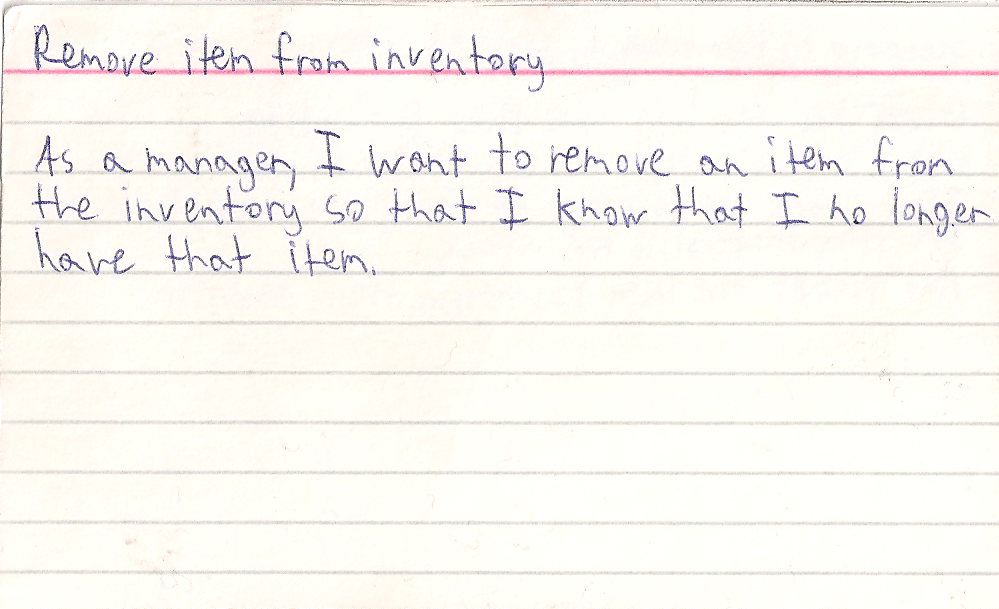 Remove item from inventory
As a manager, I want to remove an item from
the inventory so that I know that I no longer
have that item.